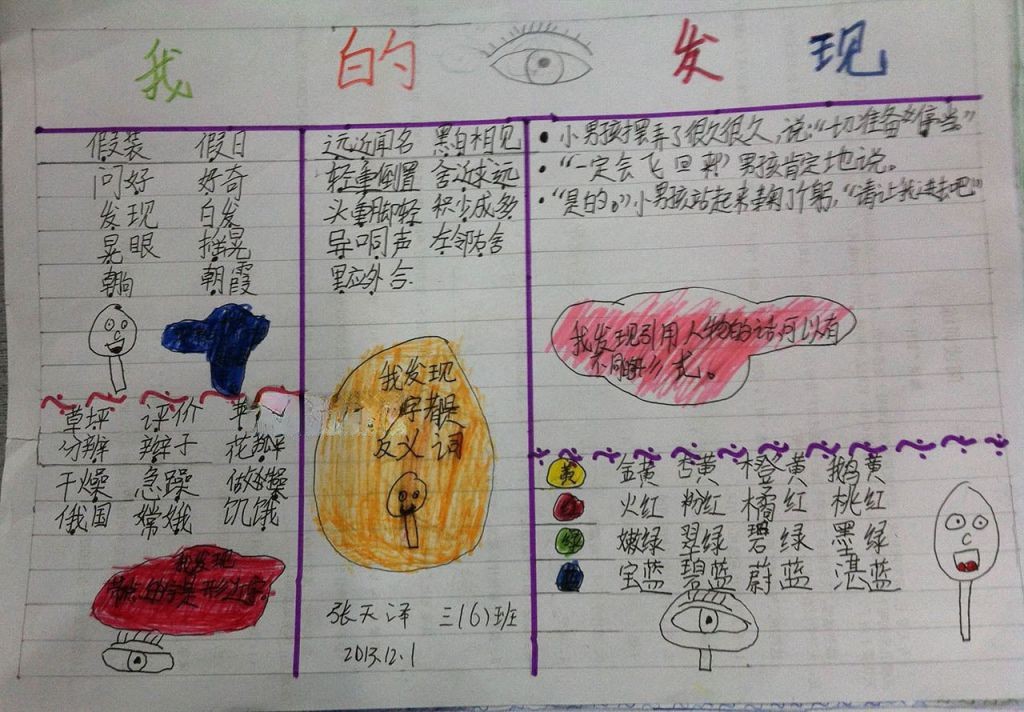 我的发现
假装 假日
问好 好奇
发现 白发
晃眼 摇晃
朝向 朝霞
草坪 评价
分辨 辫子 花瓣
干燥 急躁 做体操
俄国 嫦娥 饥饿
我发现
远近闻名 黑白相见
轻重倒置 舍近求远
头重脚轻 积少成多
异口同声 左邻右舍
里应外合
我发现
字都是
反义词
张天泽 三(6)班
2013.12.1
• 小男孩摆弄了很久很久,说:“一切准备停当”
• “一定会飞回来”男孩肯定地说。
• “是的。”小男孩站起来鞠了个躬,“请让我进去吧”
我发现引用人物的话可以有
不同的形式。
黄 金黄 杏黄 橙黄 鹅黄
红 火红 粉红 橘红 桃红
绿 嫩绿 翠绿 碧绿 墨绿
蓝 宝蓝 碧蓝 蔚蓝 湛蓝